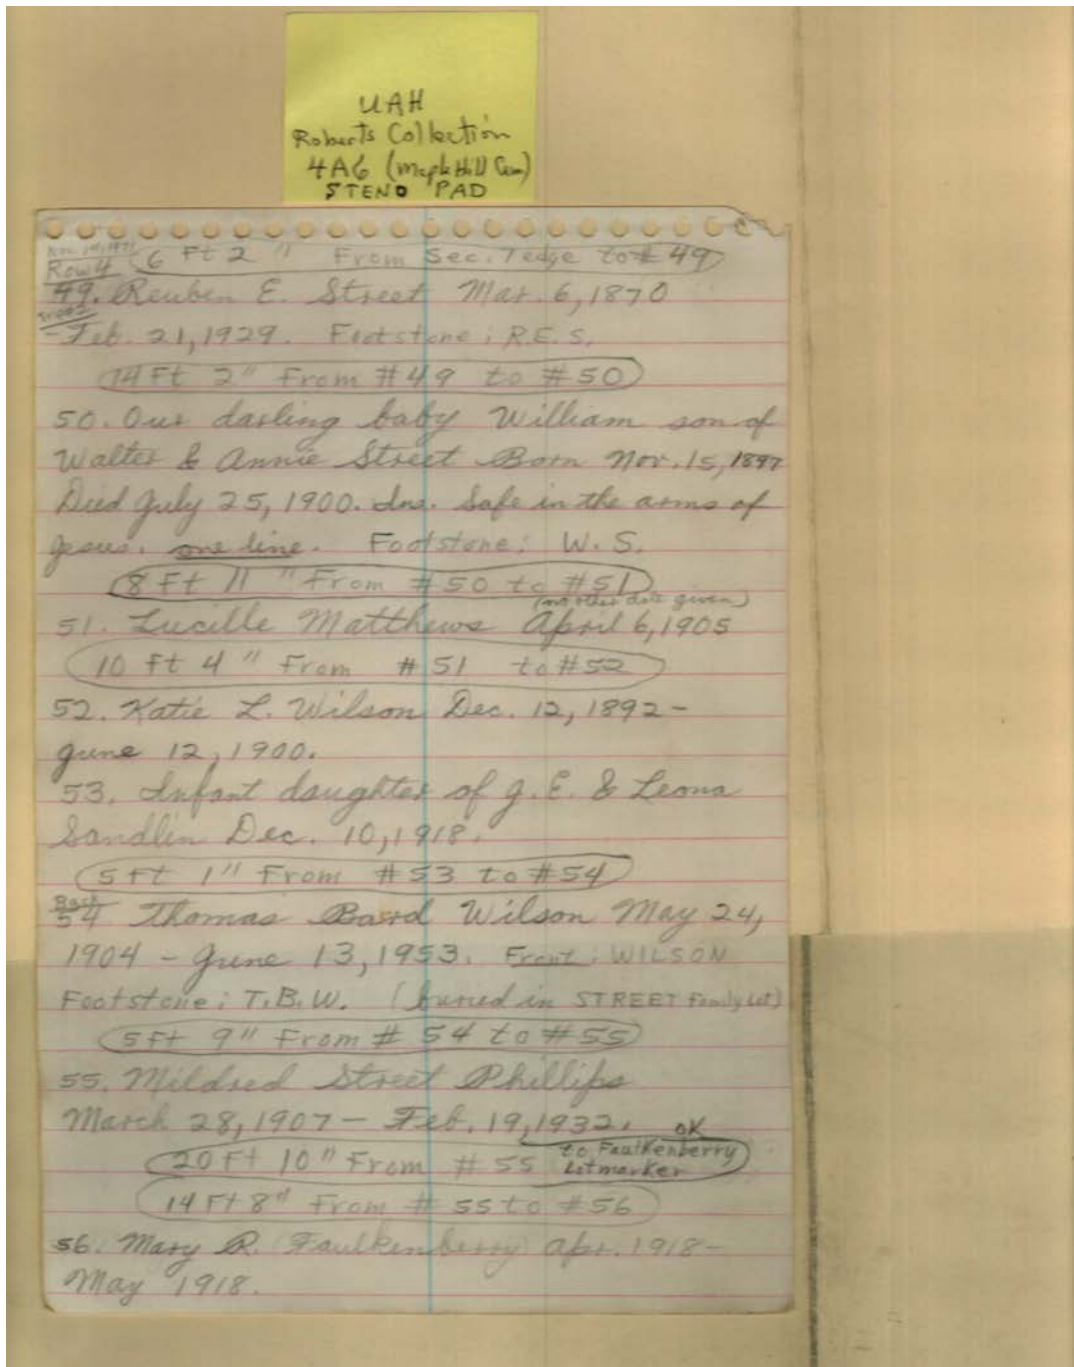 UAH
Roberts Collection
4A6 (Maple Hill Cem)
STENO PAD
Nov. 14, 1971
Row 4 6 Ft 2 " From Sec. 7 edge to # 49
49. Reuben E. Street Mar. 6, 1870
- Feb. 21, 1929. Footstone; R.E.S.
14 Ft 2" From #49 to #50
50. Our darling baby William son of
Walter & Annie Street Born Nov. 15, 1897
Died July 25, 1900. Ins. Safe in the arms of
Jesus. one line. Footstone; W.S.
8 Ft 11 " From #50 to #51
(no other date given)
51. Lucille Matthews April 6, 1905
10 ft 4 " From #51 to #52
52. Katie L. Wilson Dec. 12, 1892-
June 12, 1900.
53. Infant daughter of J. E. & Leona
Sandlin Dec. 10, 1918.
5 Ft 1" From #53 to #54
54 Thomas Baird Wilson May 24,
1904 - June 13, 1953. Front; WILSON
Footstone; T.B.W. (buried in STREET Family Lot)
5 Ft 9" From # 54 to #55
55. Mildred Street Phillips
March 28, 1907 - Feb. 19, 1932. OK
20 Ft 10" From # 55 to Faulkenberry
Lotmarker
14 Ft 8" From # 55 to #56
56. Mary R. Faulkenberry Apr. 1918-
May 1918.